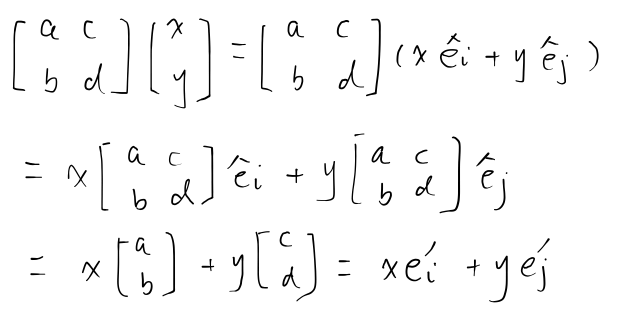 [a c; b d] [x; y] = [a c; b d] (x ê_i + y ê_j)
= x [a c; b d] ê_i + y [a c; b d] ê_j
= x [a; b] + y [c; d] = x e′_i + y e′_j